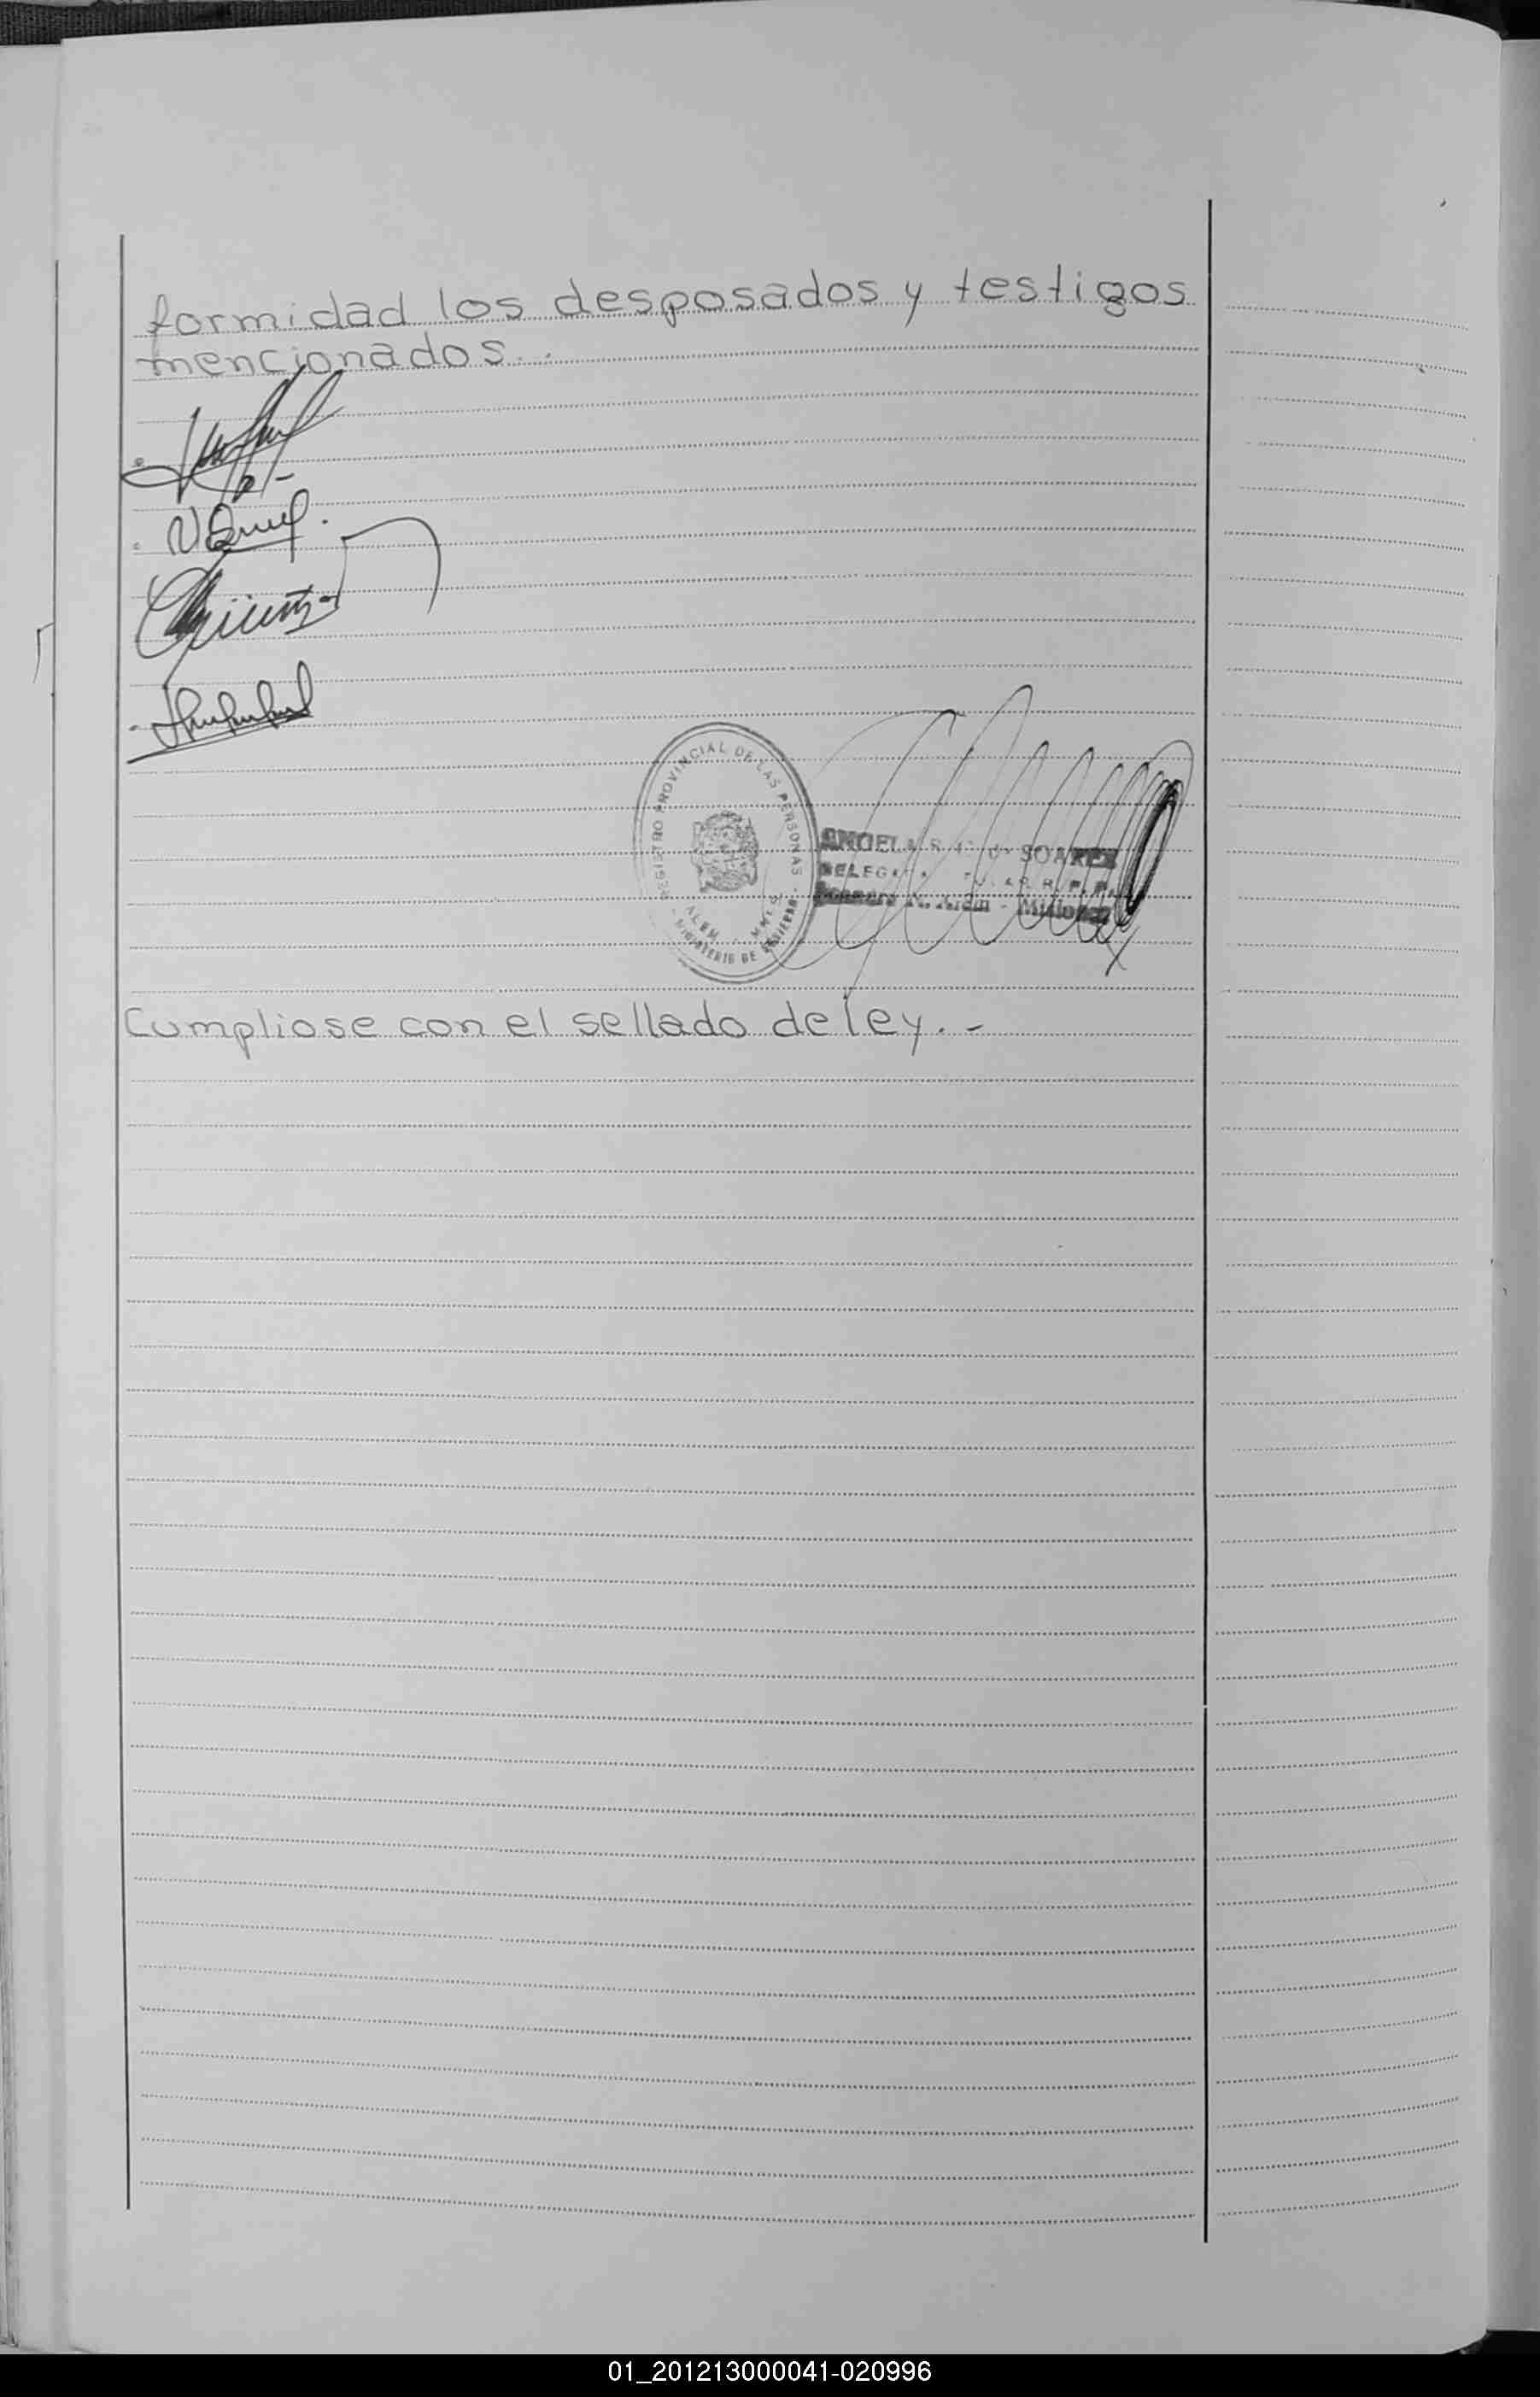 formidad los desposados y testigos
mencionados..
REGISTRO PROVINCIAL DE LAS PERSONAS
ALEM - MNES
MINISTERIO DE
ANGELA SOAREZ
R. P. P.
Alem - Misiones
Cumpliose con el sellado de ley.-
01_201213000041-020996